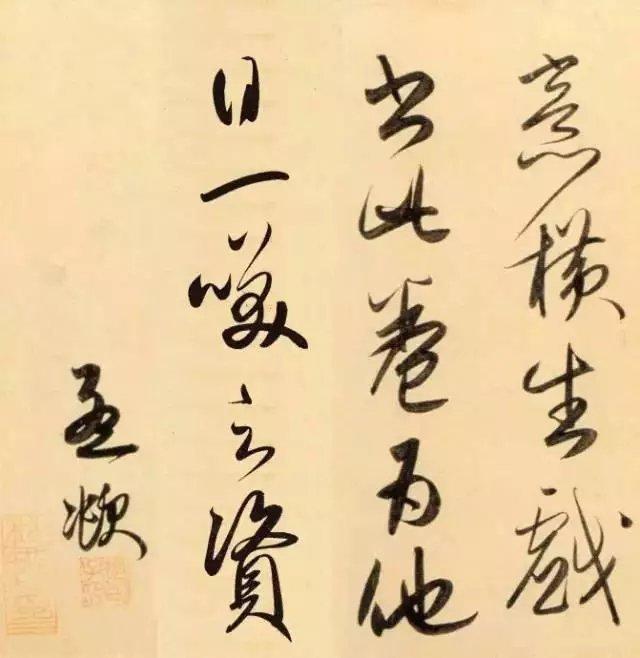 意橫生戲
書此卷為他
日一𥬇之資
孟頫